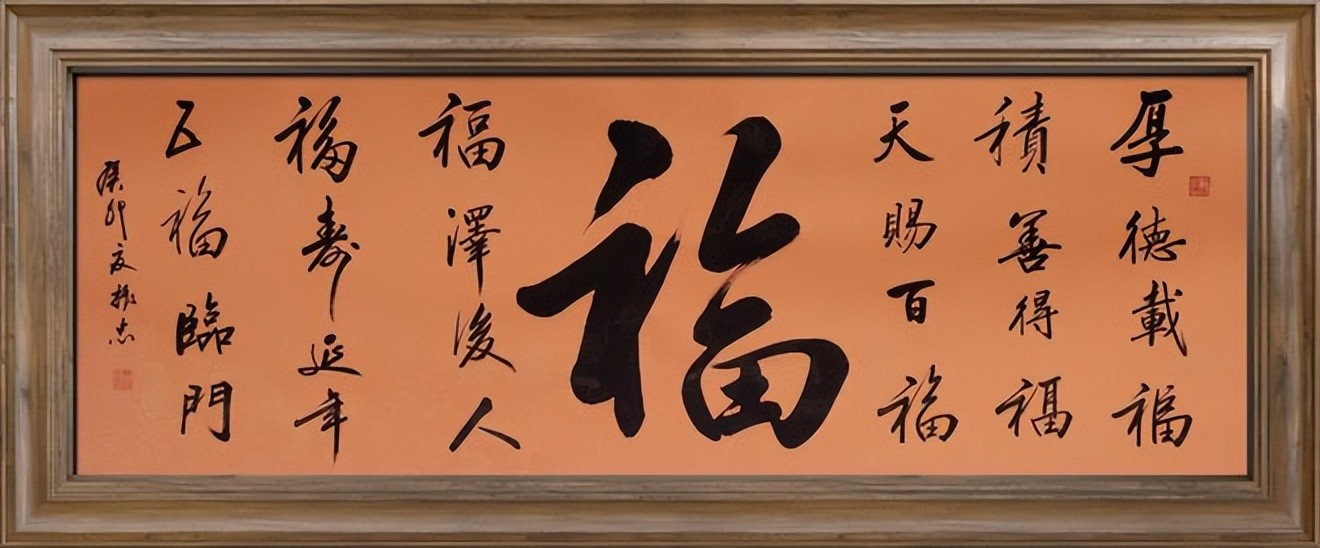 厚德載福
積善得福
天賜百福
福
福澤後人
福壽延年
五福臨門
癸卯夏振忠